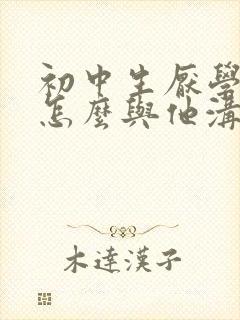 初中生厭學
怎麼與他溝
木達漢子